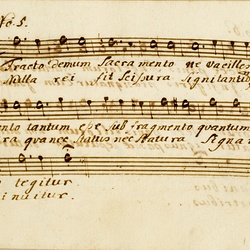 No 5.
Fracto Demum Sacramento ne vacilles
Nulla rei fit Scissura Signi tantum
ento tantum esse sub fragmento quantum
ra qua nec Status nec Statura Signa
tegitur
inuitur.